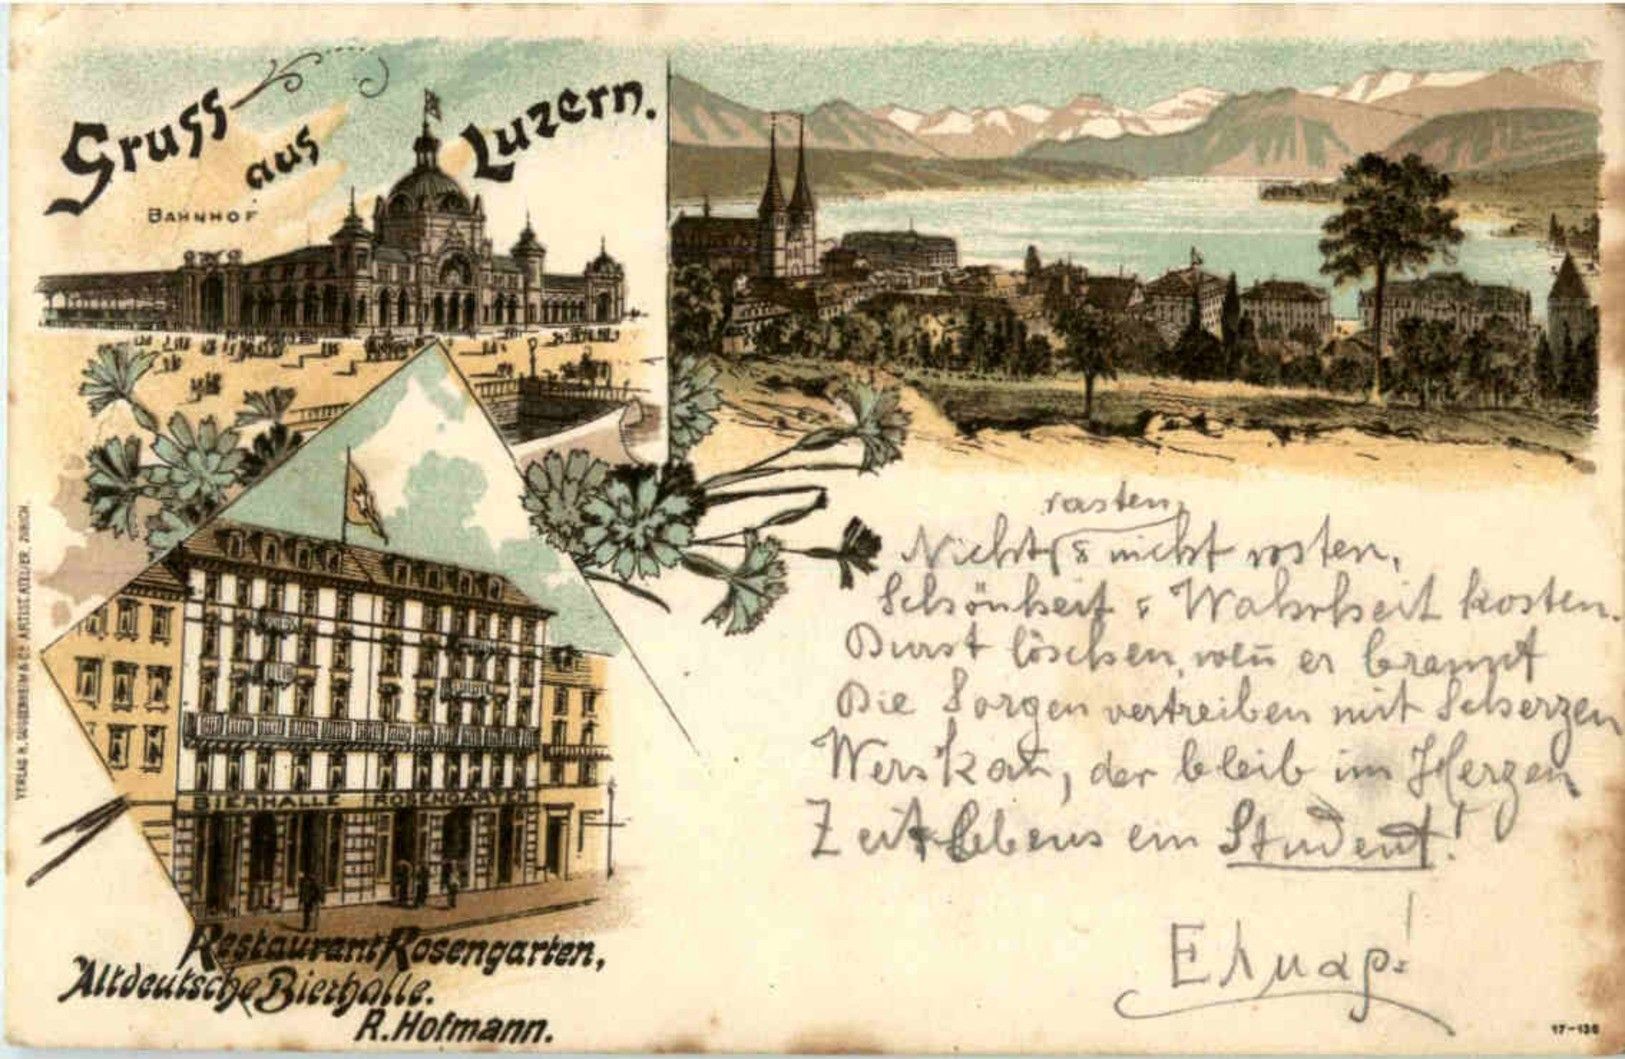 Gruss
aus
Luzern.
BAHNHOF
VERLAG R. GUGGENHEIM & Co ARTIST. ATELIER, ZÜRICH.
BIERHALLE ROSENGARTEN
Restaurant Rosengarten,
Altdeutsche Bierhalle.
R. Hofmann.
rasten,
Nicht & nicht rosten,
Schönheit & Wahrheit kosten.
Durst löschen, wen̄ er brannt
Die Sorgen vertreiben mit Scherzen
Wer's kan̄, der bleib im Herzen
Zeit Lebens ein Student!
17-136